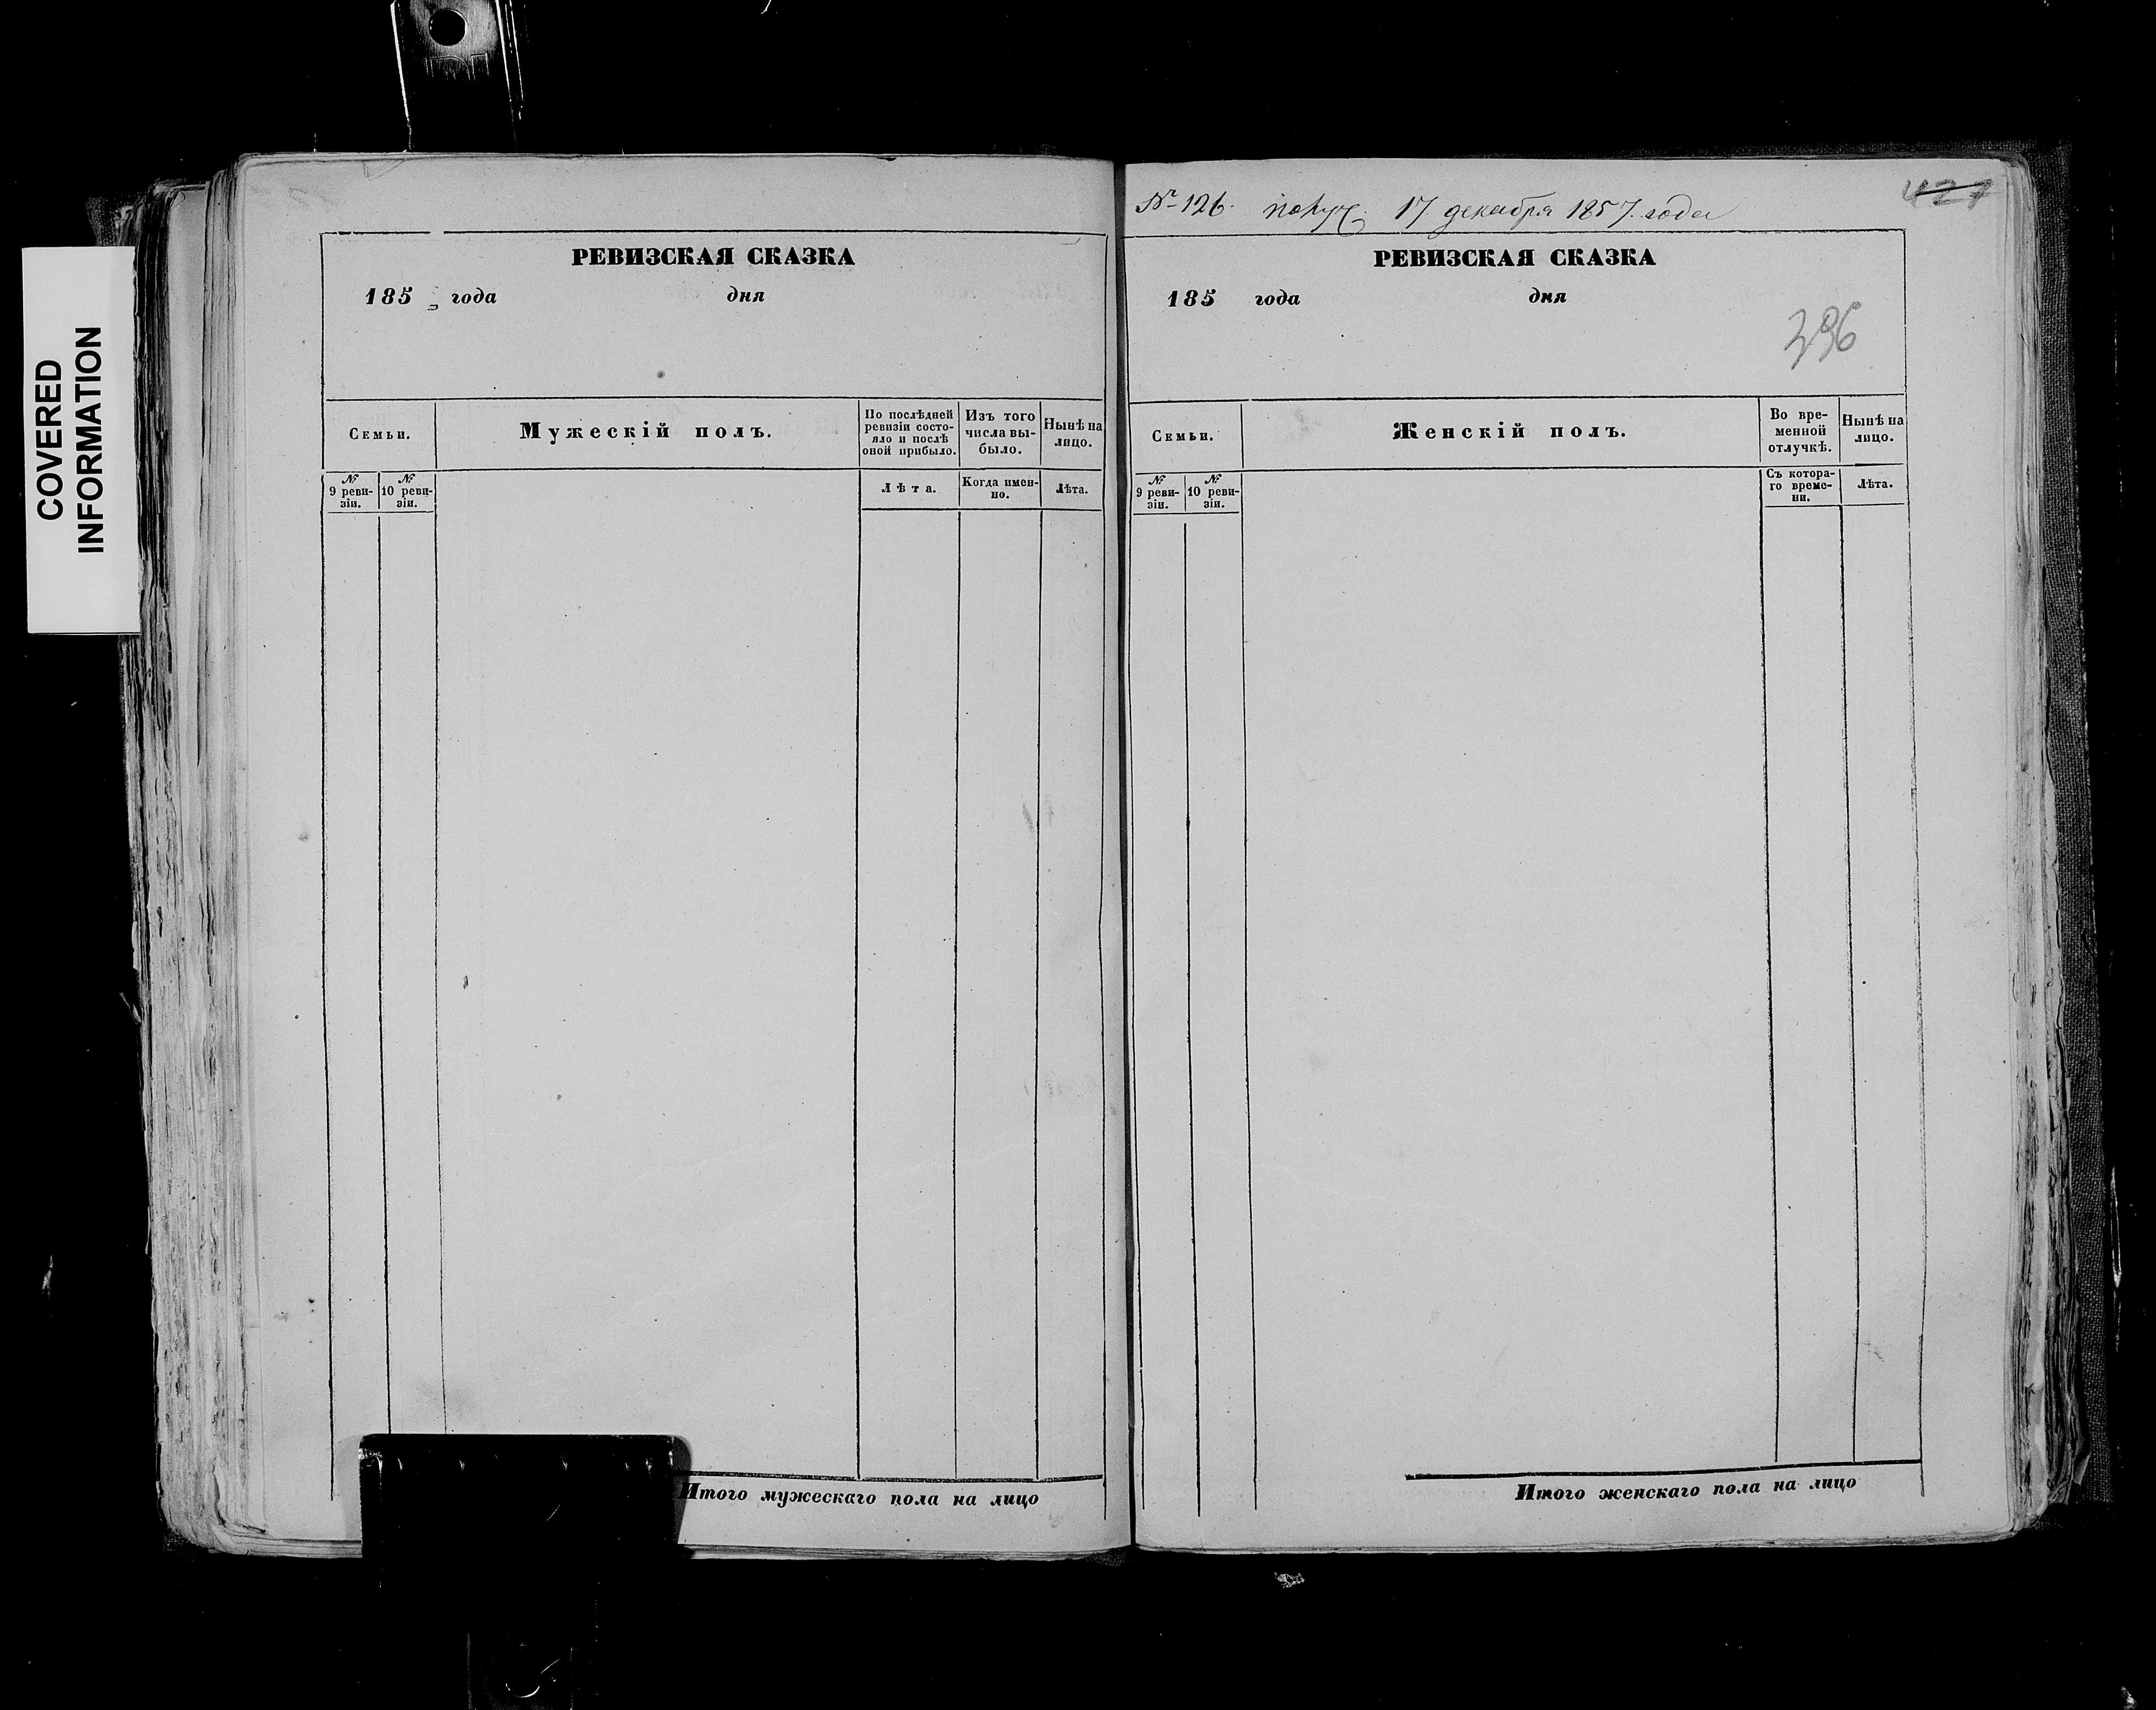 COVERED
INFORMATION
РЕВИЗСКАЯ СКАЗКА
185 года дня
Семьи.
Мужескій полъ.
По послѣдней
ревизіи состо-
яло и послѣ
оной прибыло.
Изъ того
числа вы-
было.
Нынѣ на
лицо.
№
9 реви-
зіи.
№
10 реви-
зіи.
Лѣта.
Когда имен-
но.
Лѣта.
Итого мужескаго пола на лицо
№ 126. получ. 17 декабря 1857. года
РЕВИЗСКАЯ СКАЗКА
185 года дня
396
Семьи.
Женскій полъ.
Во вре-
менной
отлучкѣ.
Нынѣ на
лицо.
№
9 реви-
зіи.
№
10 реви-
зіи.
Съ котора-
го време-
ни.
Лѣта.
Итого женскаго пола на лицо